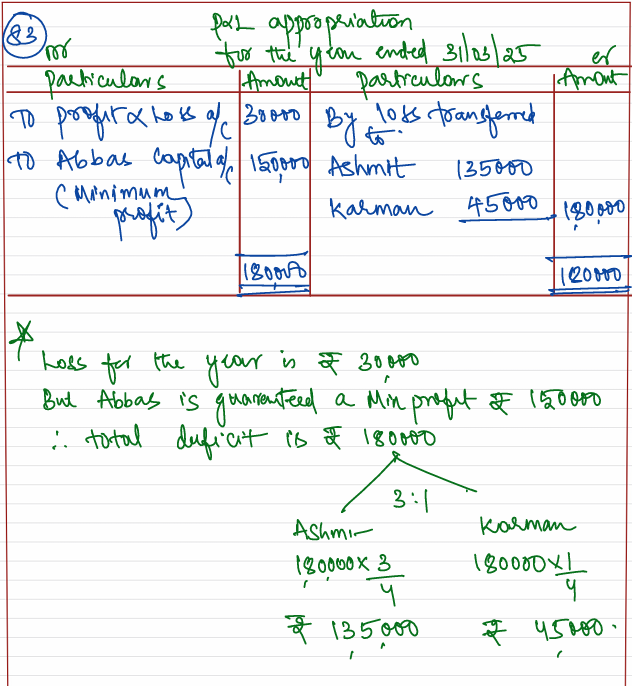 83
P&L appropriation
Dr for the year ended 31/03/25 cr
Particulars Amount Particulars Amount
To profit & Loss a/c 30000 By loss transferred
to
To Abbas Capital a/c 150000 Ashmit 135000
(Minimum profit) Karman 45000 180000
180000 180000
Loss for the year is ₹ 30,000
But Abbas is guaranteed a Min profit ₹ 150000
∴ total deficit is ₹ 180000
3:1
Ashmit Karman
180000 x 3/4 180000 x 1/4
₹ 135,000 ₹ 45,000.